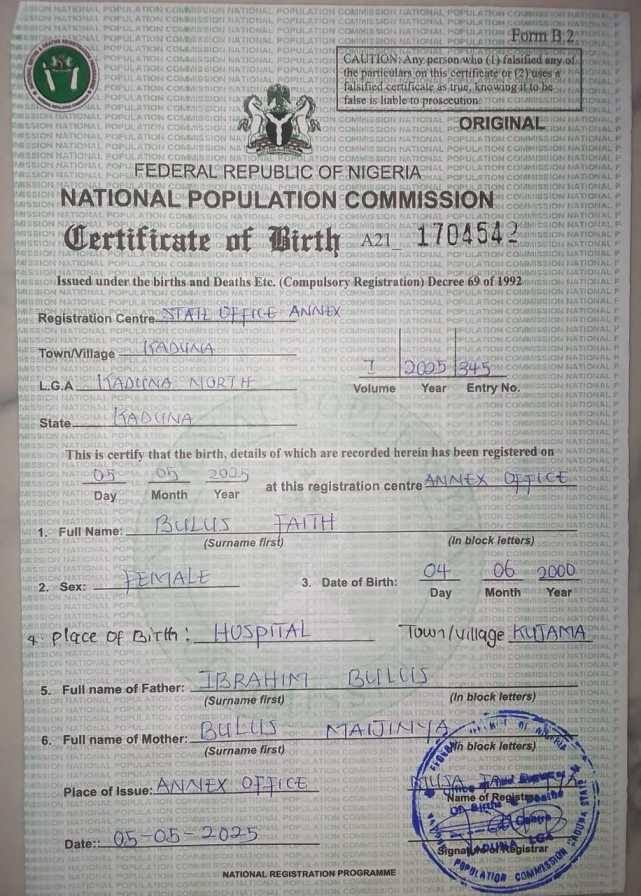 Form B.2
CAUTION: Any person who (1) falsified any of
the particulars on this certificate or (2) uses a
falsified certificate as true, knowing it to be
false is liable to prosecution.
ORIGINAL
FEDERAL REPUBLIC OF NIGERIA
NATIONAL POPULATION COMMISSION
Certificate of Birth A21_ 1704542
Issued under the births and Deaths Etc. (Compulsory Registration) Decree 69 of 1992
Registration Centre STATE OFFICE ANNEX
Town/Village KADUNA
L.G.A KADUNA NORTH
I 2025 345
Volume Year Entry No.
State KADUNA
This is certify that the birth, details of which are recorded herein has been registered on
05 05 2025 at this registration centre ANNEX OFFICE
Day Month Year
1. Full Name: BULUS FAITH
(Surname first) (In block letters)
2. Sex: FEMALE 3. Date of Birth: 04 06 2000
Day Month Year
4. Place of Birth: HOSPITAL Town/village KUJAMA
5. Full name of Father: IBRAHIM BULUS
(Surname first) (In block letters)
6. Full name of Mother: BULUS MAIJINYA
(Surname first) (In block letters)
Place of Issue: ANNEX OFFICE
Name of Registrar
Date:: 05-05-2025
Signature of Registrar
NATIONAL REGISTRATION PROGRAMME